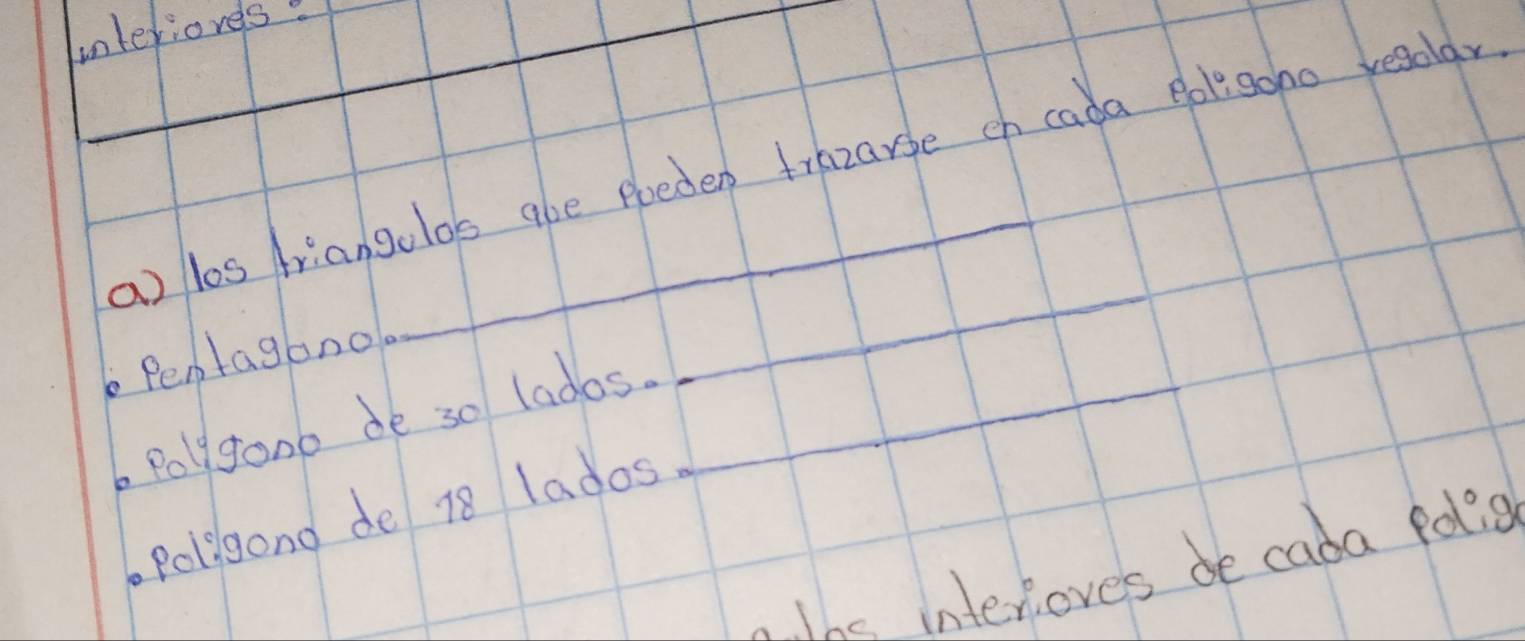 interiores:
a) los triangulos que pueden trazarse en cada poligono regolar.
• Pentagono.
• Poligono de 30 lados.
• Poligono de 18 lados.
interiores de cada polig